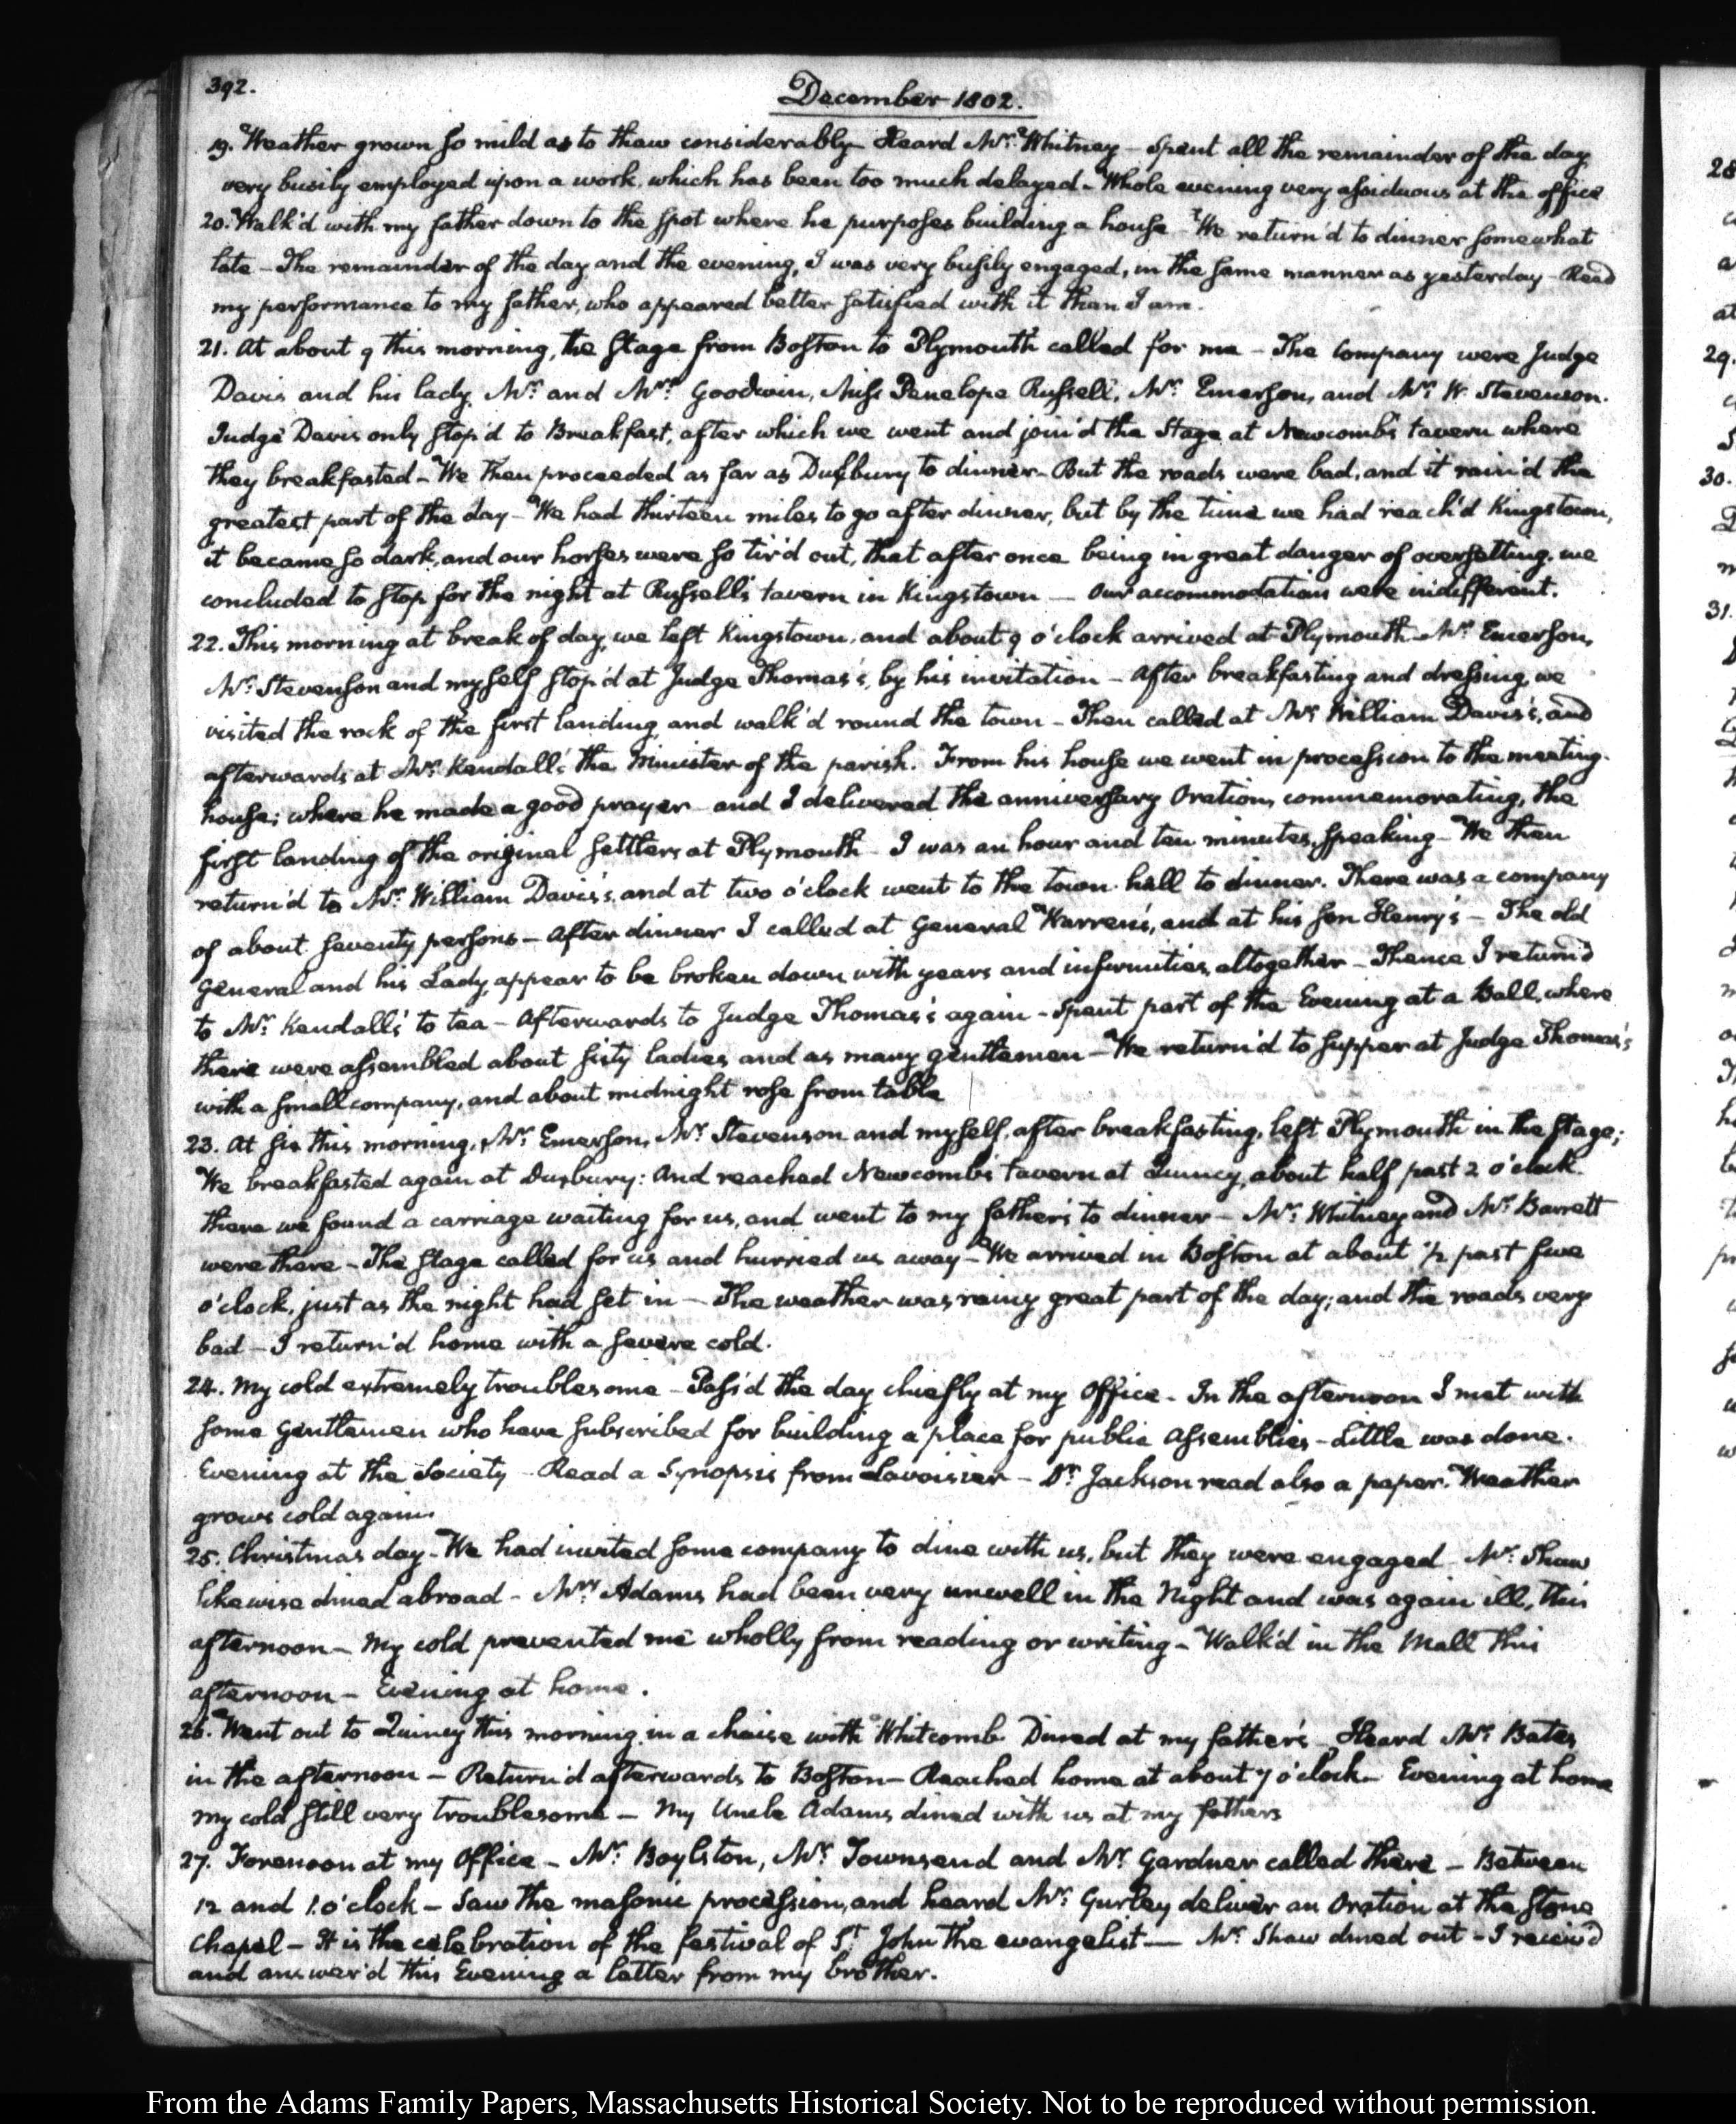 392.
December 1802.
19. Weather grown so mild as to thaw considerably— Heard Mr: Whitney— Spent all the remainder of the day
very busily employed upon a work, which has been too much delayed— Whole evening very assiduous at the office
20. Walk'd with my father down to the spot where he purposes building a house— We return'd to dinner somewhat
late— The remainder of the day and the evening, I was very busily engaged, in the same manner as yesterday— Read
my performance to my father, who appeared better satisfied with it than I am.
21. At about 9 this morning, the Stage from Boston to Plymouth called for me— The Company were Judge
Davis and his lady, Mr: and Mrs: Goodwin, Miss Penelope Russell, Mr: Emerson, and Mr: W. Stevenson.
Judge Davis only stop'd to Breakfast, after which we went and join'd the Stage at Newcomb's tavern where
they breakfasted— We then proceeded as far as Duxbury to dinner— But the roads were bad, and it rain'd the
greatest part of the day— We had thirteen miles to go after dinner, but by the time we had reach'd Kingstown,
it became so dark, and our horses were so tir'd out, that after once being in great danger of oversetting, we
concluded to stop for the night at Russell's tavern in Kingstown— Our accommodations were indifferent.
22. This morning at break of day, we left Kingstown, and about 9 o'clock arrived at Plymouth— Mr: Emerson,
Mr: Stevenson and myself stop'd at Judge Thomas's, by his invitation— After breakfasting and dressing, we
visited the rock of the first landing, and walk'd round the town— Then called at Mr: William Davis's, and
afterwards at Mr: Kendall's the Minister of the parish. From his house we went in procession to the meeting-
house; where he made a good prayer— and I delivered the anniversary Oration, commemorating, the
first landing of the original settlers at Plymouth— I was an hour and ten minutes, speaking— We then
return'd to Mr: William Davis's, and at two o'clock went to the town-hall to dinner. There was a company
of about seventy persons— After dinner I called at General Warren's, and at his son Henry's— The old
General and his Lady, appear to be broken down with years and infirmities, altogether— Thence I return'd
to Mr: Kendall's to tea— Afterwards to Judge Thomas's again— Spent part of the Evening at a Ball, where
there were assembled about sixty ladies and as many gentlemen— We return'd to supper at Judge Thomas's
with a small company, and about midnight rose from table
23. At six this morning, Mr: Emerson, Mr: Stevenson and myself, after breakfasting, left Plymouth in the Stage;
We breakfasted again at Duxbury: And reached Newcomb's tavern at Quincy, about half past 2 o'clock.
there we found a carriage waiting for us, and went to my father's to dinner— Mr: Whitney and Mr: Barrett
were there— The Stage called for us and hurried us away— We arrived in Boston at about 1/2 past five
o'clock, just as the night had set in— The weather was rainy great part of the day; and the roads very
bad— I return'd home with a severe cold.
24. My cold extremely troublesome— Pass'd the day chiefly at my Office— In the afternoon I met with
some Gentlemen who have subscribed for building a place for public Assemblies— Little was done.
Evening at the Society— Read a Synopsis from Lavoisier— Dr: Jackson read also a paper. Weather
grows cold again.
25. Christmas day— We had invited some company to dine with us, but they were engaged— Mr: Shaw
likewise dined abroad— Mrs: Adams had been very unwell in the Night and was again ill, this
afternoon— My cold prevented me wholly from reading or writing— Walk'd in the Mall this
afternoon— Evening at home.
26. Went out to Quincy this morning, in a chaise with Whitcomb. Dined at my father's— Heard Mr: Bates
in the afternoon— Return'd afterwards to Boston— Reached home at about 7 o'clock— Evening at home
my cold still very troublesome— My Uncle Adams dined with us at my fathers
27. Forenoon at my Office— Mr: Boylston, Mr: Townsend and Mr: Gardner called there— Between
12 and 1. o'clock— Saw the masonic procession, and heard Mr: Gurley deliver an Oration at the Stone
Chapel— It is the celebration of the festival of St: John the evangelist— Mr: Shaw dined out— I receiv'd
and answer'd this Evening a letter from my brother.
28
29.
30.
31.
From the Adams Family Papers, Massachusetts Historical Society. Not to be reproduced without permission.